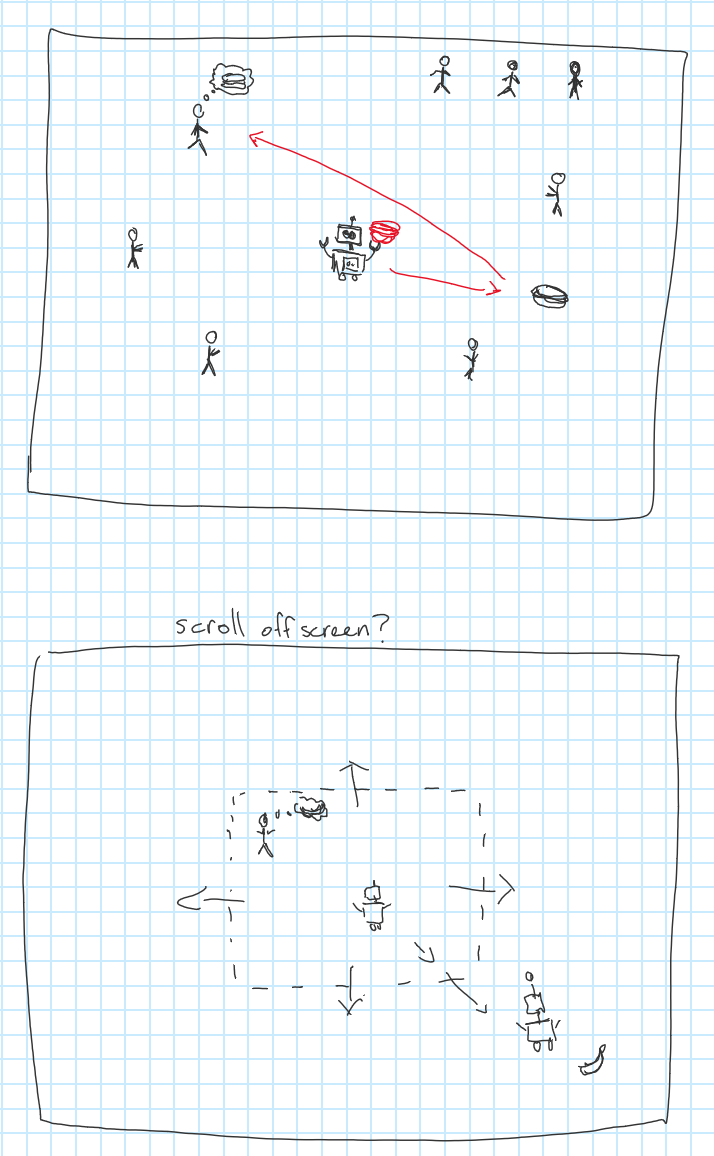 scroll off screen?